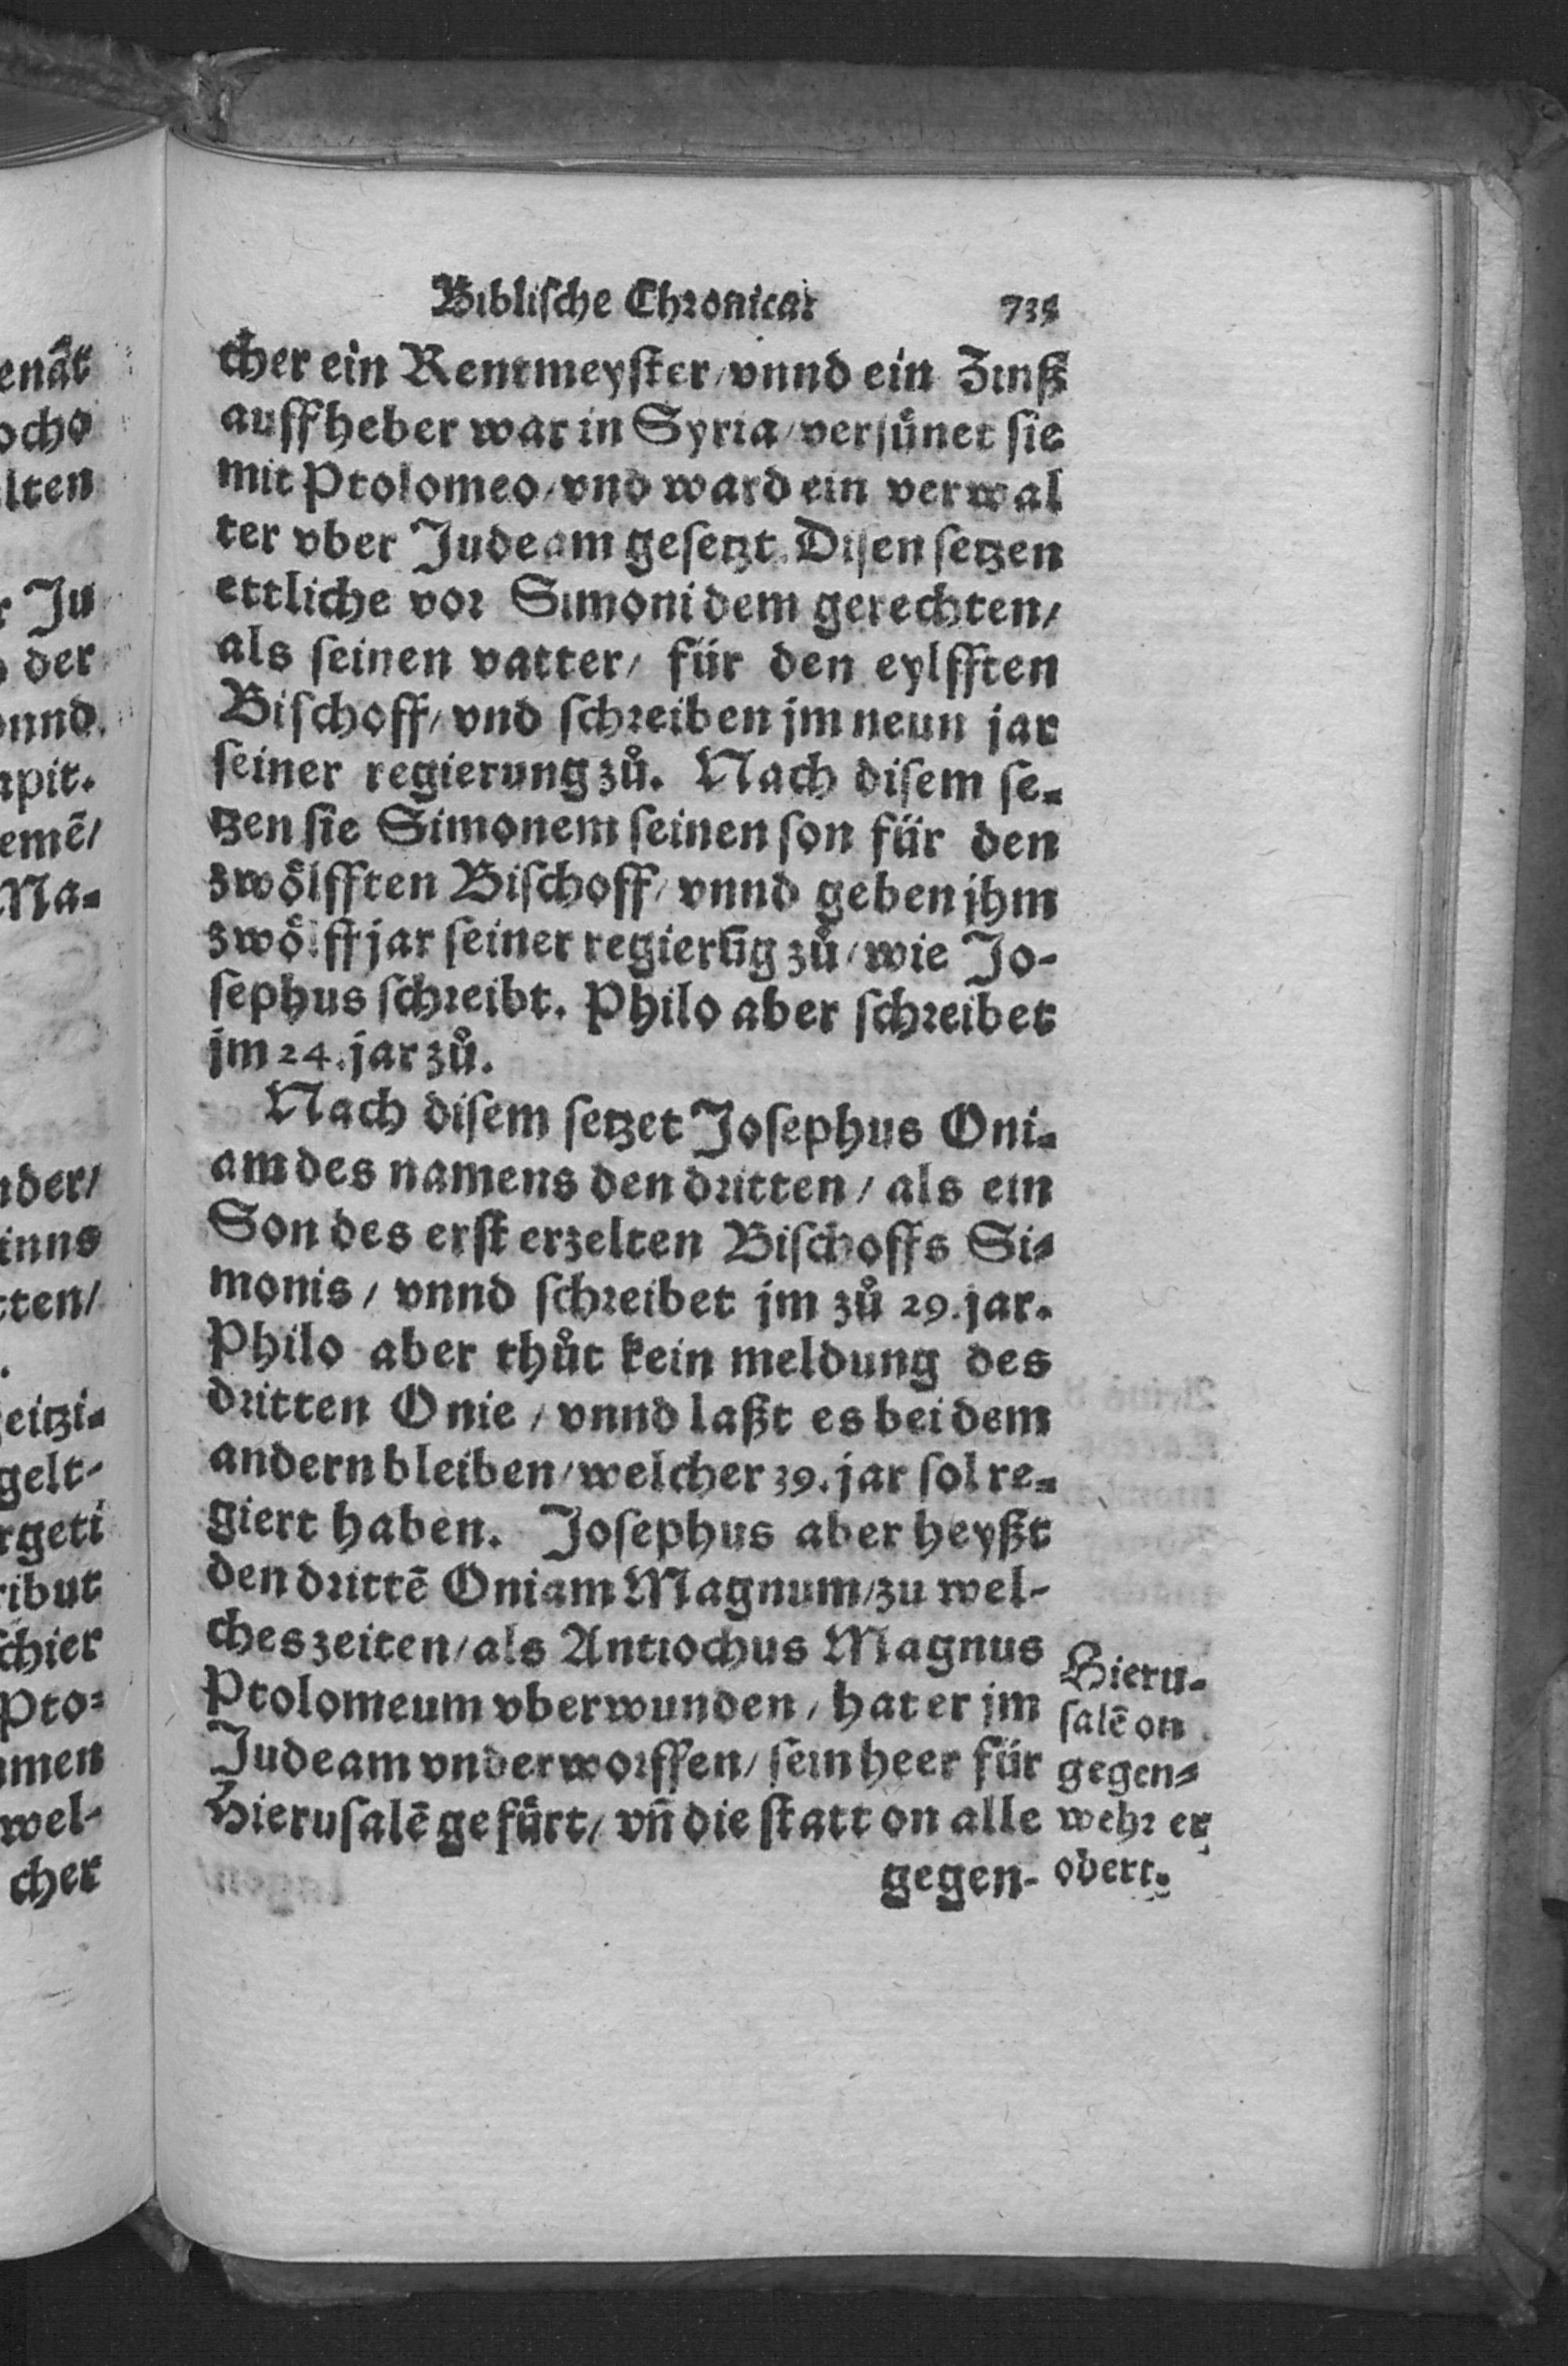 Biblische Chronica. 735
cher ein Rentmeyster / vnnd ein Zinß
auffheber war in Syria / versůnet sie
mit Ptolomeo / vnd ward ein verwal
ter vber Judeam gesetzt. Disen setzen
ettliche vor Simoni dem gerechten /
als seinen vatter / für den eylfften
Bischoff / vnd schreiben jm neun jar
seiner regierung zů. Nach disem se-
tzen sie Simonem seinen son für den
zwölfften Bischoff / vnnd geben jhm
zwölff jar seiner regierūg zů / wie Jo-
sephus schreibt. Philo aber schreibet
jm 24. jar zů.
Nach disem setzet Josephus Oni-
am des namens den dritten / als ein
Son des erst erzelten Bischoffs Si-
monis / vnnd schreibet jm zů 29. jar.
Philo aber thůt kein meldung des
dritten Onie / vnnd laßt es bei dem
andern bleiben / welcher 39. jar sol re-
giert haben. Josephus aber heyßt
den drittē Oniam Magnum / zu wel-
ches zeiten / als Antiochus Magnus
Ptolomeum vberwunden / hat er jm
Judeam vnderworffen / sein heer für
Hierusalē gefürt / vn̄ die statt on alle
gegen-
Hieru-
salē on
gegen-
wehr er
obert.
enāt
ocho
lten
r Ju
der
vnnd.
apit.
emē/
Ma-
nder/
inns
tten/
eitzi-
gelt-
rgeti
ribut
schier
Pto-
men
wel-
cher